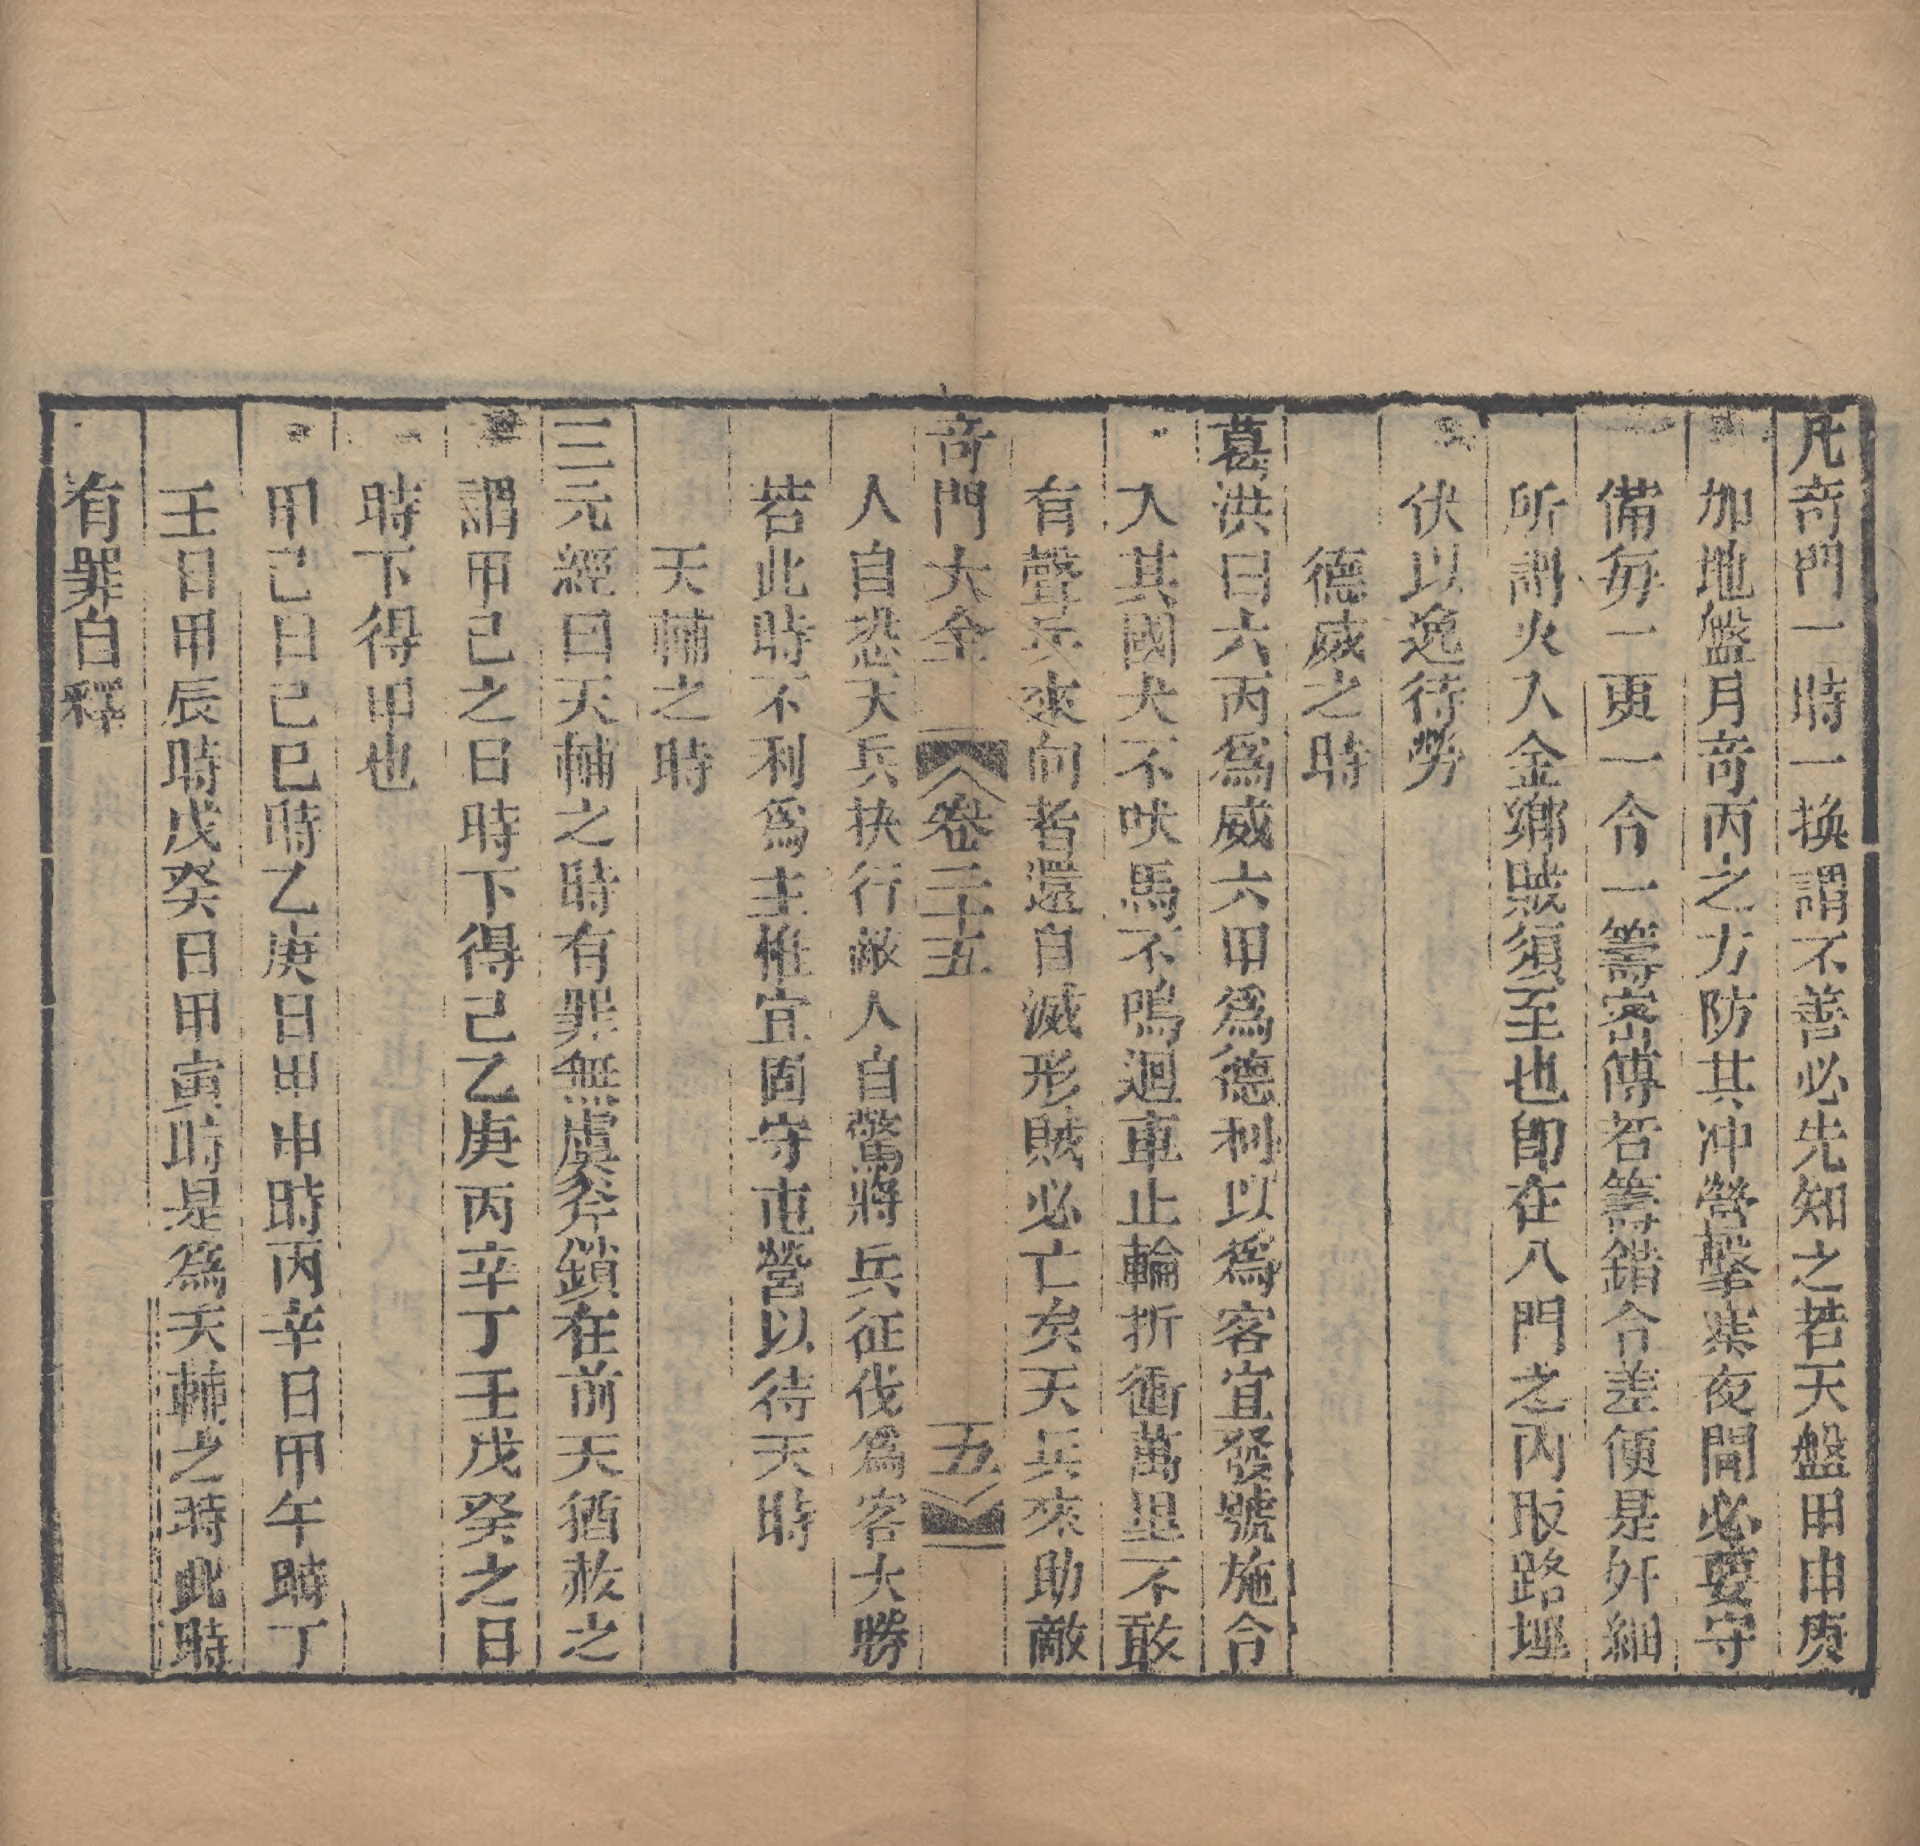 凡奇門一時一換謂不善必先知之若天盤甲申庚
加地盤月奇丙之方防其冲營擊寨夜間必要守
備每一更一令一籌密傳若籌錯令差便是奸細
所謂火入金鄉賊須至也卽在八門之丙取路埋
伏以逸待勞
德威之時
葛洪曰六丙爲威六甲爲德利以爲客宜發號施令
入其國犬不吠馬不鳴迴車止輪折衝萬里不敢
有聲兵來向者還自滅形賊必亡矣天兵來助敵
奇門大全 卷二十五 五
人自恐天兵抉行敵人自驚將兵征伐爲客大勝
若此時不利爲主惟宜固守屯營以待天時
天輔之時
三元經曰天輔之時有罪無虞斧鎖在前天猶赦之
謂甲己之日時下得己乙庚丙辛丁壬戊癸之日
時下得甲也
甲己日己巳時乙庚日甲申時丙辛日甲午時丁
壬日甲辰時戊癸日甲寅時是爲天輔之時此時
有罪自釋